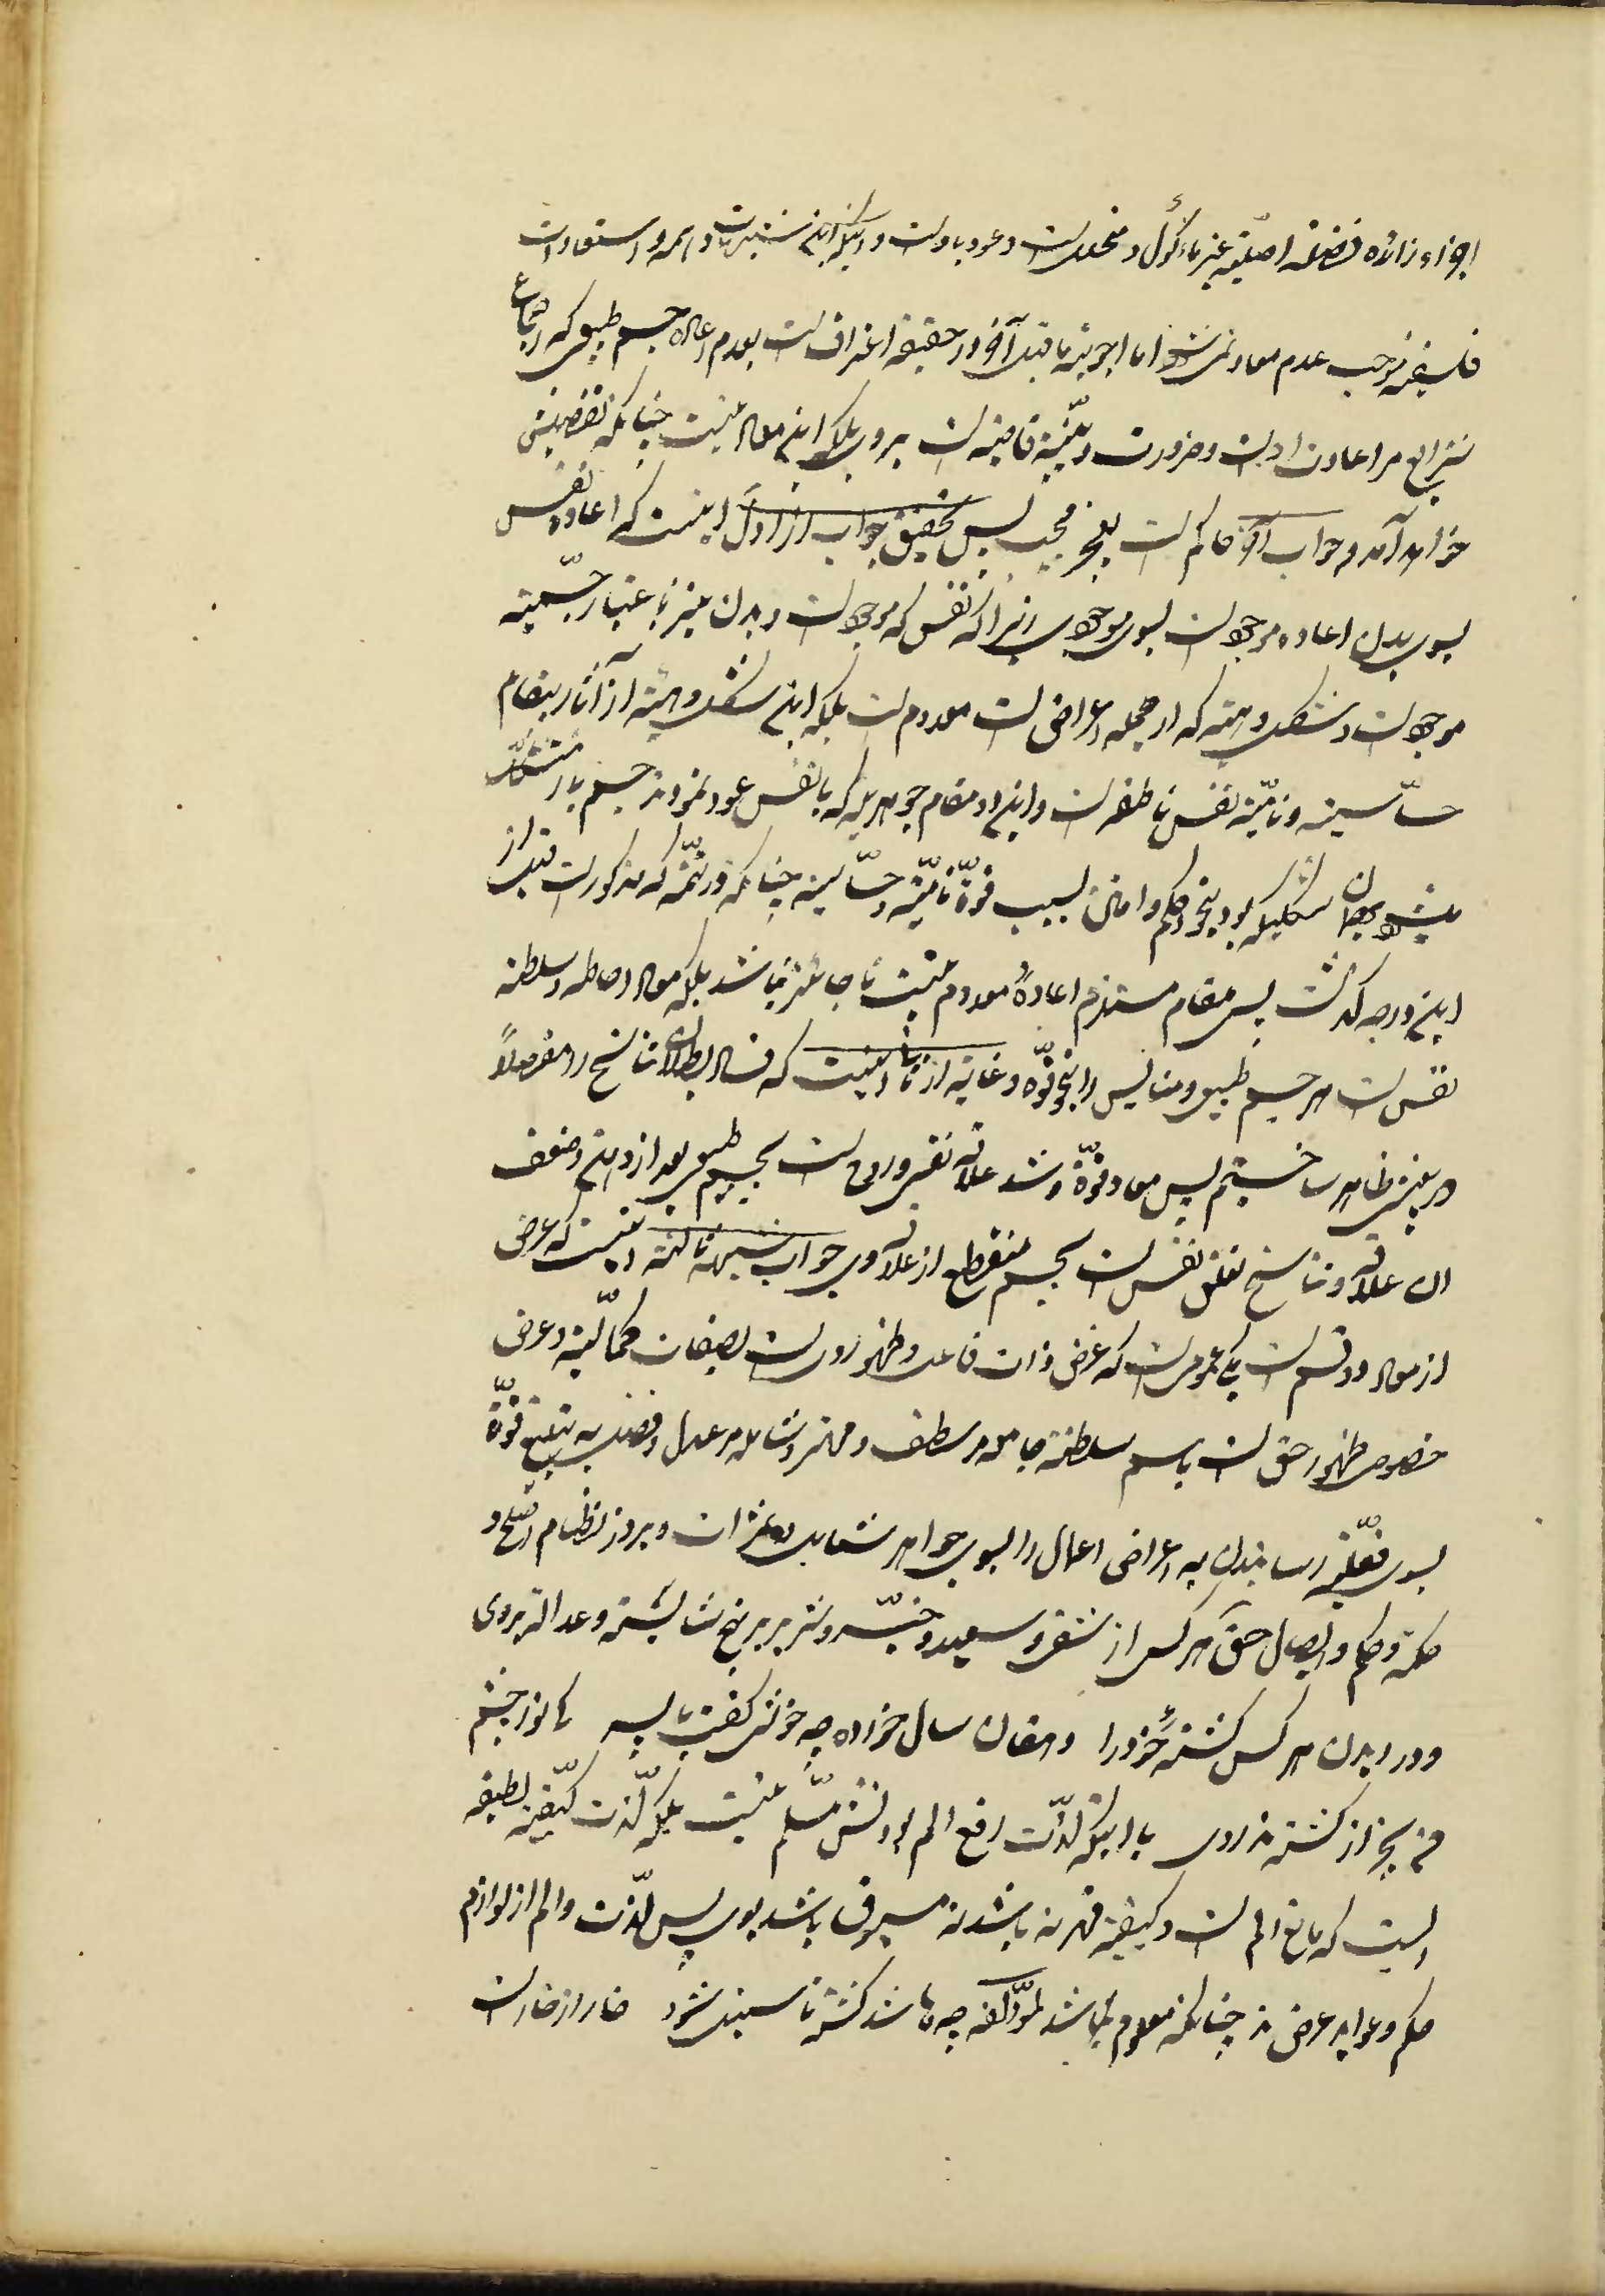 اجزاء زائده فضلیه اصلیه غیر مأکول و منحل است و عود با اوست و اینکه این شبهات واهمه و استبعادات
فلسفیه موجب عدم معاد نمیشود اما اجوبه ما قبل آخر در حقیقة اعتراف است بعدم اعاده جسم طبیعی که اجماع
شرایع مر اعادت او است و ضرورت دینیه قاضیه است بر وی بلکه این معاد نیست چنانکه تفضیلش
خواهد آمد و جواب آخر حاکم است بعجز مجیب پس تحقیق جواب از اول اینست که اعاده نفس
بسوی بدن اعاده موجود است بسوی موجودی زیرا که نفس که موجود است و بدن نیز باعتبار جسمیته
موجود است و شکل و هیئة که از جمله اعراض است معدوم است بلکه این شکل و هیئة از آثار بمقام
حساسیته و نامیته نفس ناطقه است و این در مقام جوهریه که با نفس عود نمودند جسم باز متشکل
میشود بهمان شکلیکه بود بنحو احکم و امتن بسبب قوة نامیته و حساسیته چنانکه در تتمه که مذکور است قبل از
این درجه گذشت پس مقام مستلزم اعادهٔ معدوم نیست تا جائز نباشد بلکه معاد احاطه و سلطنه
نفس است هر جسم طبیعی و مثالیش را بنحو قوه و غایته از ثانی اینست که فساد بطلان تناسخ را مفصلاً
در پیش ظاهر ساختیم پس معاد قوة و شدت علاقه نفس و روح است بجسم طبیعی بعد از وهن و ضعف
ان علاقه و تناسخ تعلق نفس است بجسم منقطع از علاقه وی جواب شبهه ثالثه اینست که غرض
از معاد دو قسم است یکی عمومی است که غرض ذات فاعل و ظهور وی است بصفات کمالیته و غرض
خصوص ظهور حق است باسم سلطنه جامعه مر لطف و قهر و شامله مر عدل و فضل به تبلیغ قوة
بسوی فعلیه رسانیدن به اعراض اعمال را بسوی جواهر شمایل و ثمرات و بروز نظام اصلح و
حکمة و حکم و ایصال حق هر کس از شقی و سعید و خیر و شریر بر نهج شایسته و عدالة بروی
و درویدن هر کس کشتهٔ خود را دهقان سال خورده چه خوش گفت با پسر کای نور چشم
من بجز از کشته ندروی با اینکه لذات رفع الم بودنش مسلم نیست بلکه لذت کیفیة لطیفه
ایست که مانع الم است و کیفیة قهریه باشد نه مسبوق باشد بوی پس لذت و الم از لوازم
حکم و عواید عرض ند چنانکه معلوم میباشد لمؤلفه چه باشد کشته تا سبز شود خار از خار است